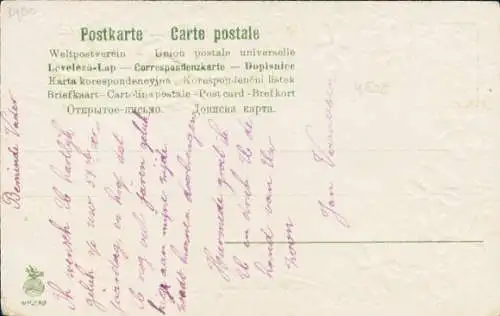 Postkarte – Carte postale
Weltpostverein – Union postale universelle
Levelező-Lap – Correspondenzkarte – Dopisnice
Karta korespondencyjna – Korespondenční lístek
Briefkaart – Cartolina postale – Post card – Brefkort
Открытое письмо. Дописна карта.
Beminde Vader
Ik wensch U hartelijk
geluk op uw 54 ste
jaardag, en hoop dat
U nog vele jaren geluk
aan mijne zijde
Hiermede groet ik
U en druk U de
hand van Uw
zoon
Jan